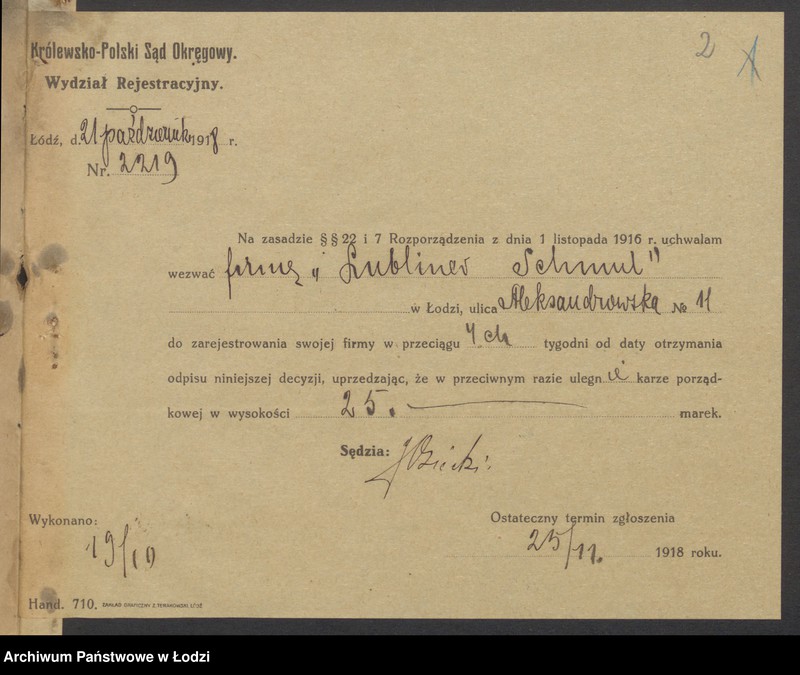 2
Królewsko-Polski Sąd Okręgowy.
Wydział Rejestracyjny.
Łódź, d. 21 październik 1918 r.
Nr. 2219
Na zasadzie §§ 22 i 7 Rozporządzenia z dnia 1 listopada 1916 r. uchwalam
wezwać firmę „Lubliner Schmul"
w Łodzi, ulica Aleksandrowska № 11
do zarejestrowania swojej firmy w przeciągu 4ch tygodni od daty otrzymania
odpisu niniejszej decyzji, uprzedzając, że w przeciwnym razie ulegnie karze porząd-
kowej w wysokości 25. marek.
Sędzia:
Wykonano:
19/10
Ostateczny termin zgłoszenia
25/11. 1918 roku.
Hand. 710. ZAKŁAD GRAFICZNY Z. TERAKOWSKI, ŁÓDŹ
Archiwum Państwowe w Łodzi